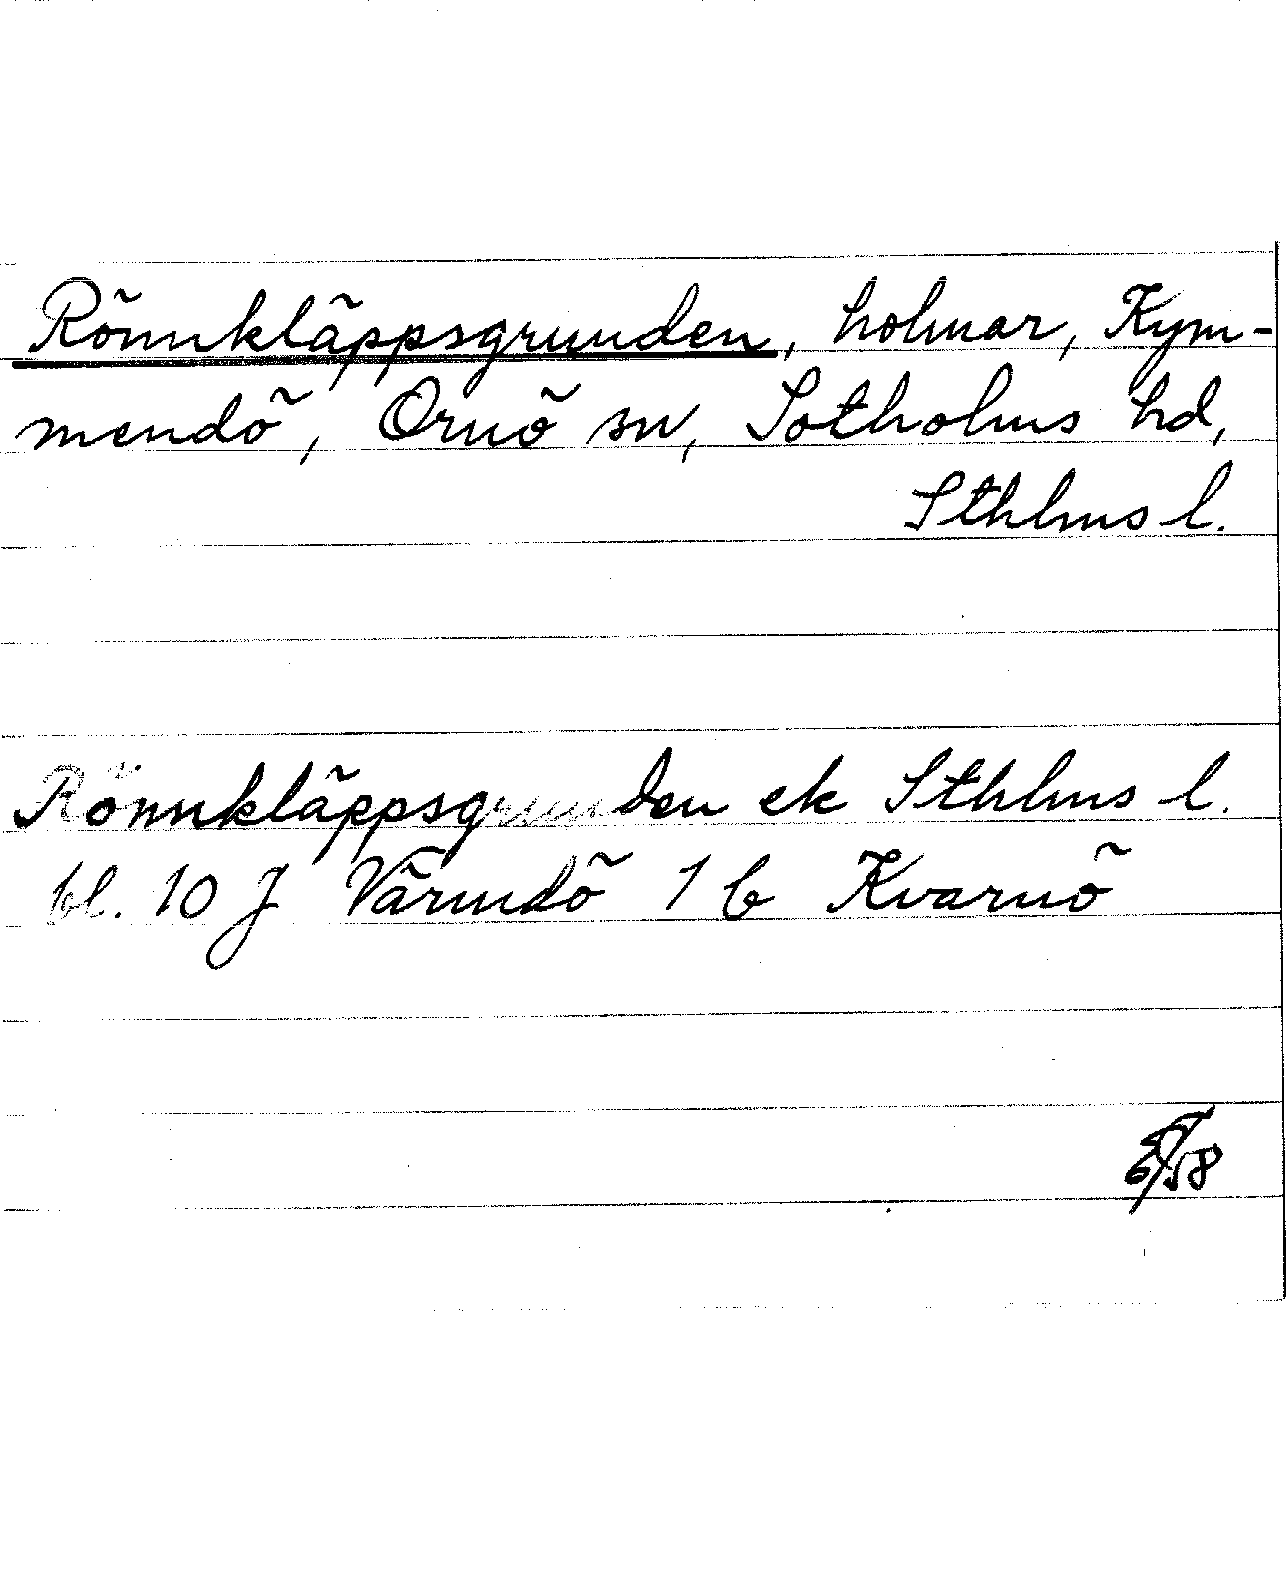 Rönnkläppsgrunden, holmar, Kym-
mendö, Ornö sn, Sotholms hd,
Sthlms l.
Rönnkläppsgrunden ek Sthlms l.
bl. 10 J Värmdö 1 b Kvarnö